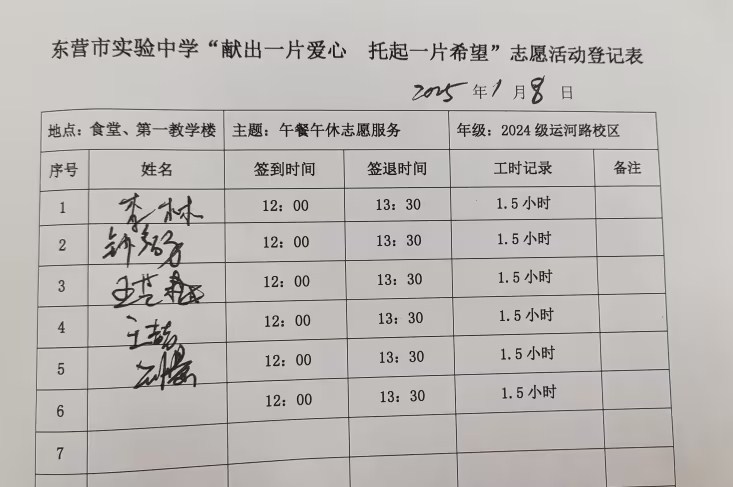 东营市实验中学“献出一片爱心 托起一片希望”志愿活动登记表
2025年1月8日
地点：食堂、第一教学楼 主题：午餐午休志愿服务 年级：2024 级运河路校区
序号 姓名 签到时间 签退时间 工时记录 备注
1 李林 12：00 13：30 1.5小时
2 12：00 13：30 1.5小时
3 12：00 13：30 1.5小时
4 12：00 13：30 1.5小时
5 12：00 13：30 1.5小时
6 12：00 13：30 1.5小时
7